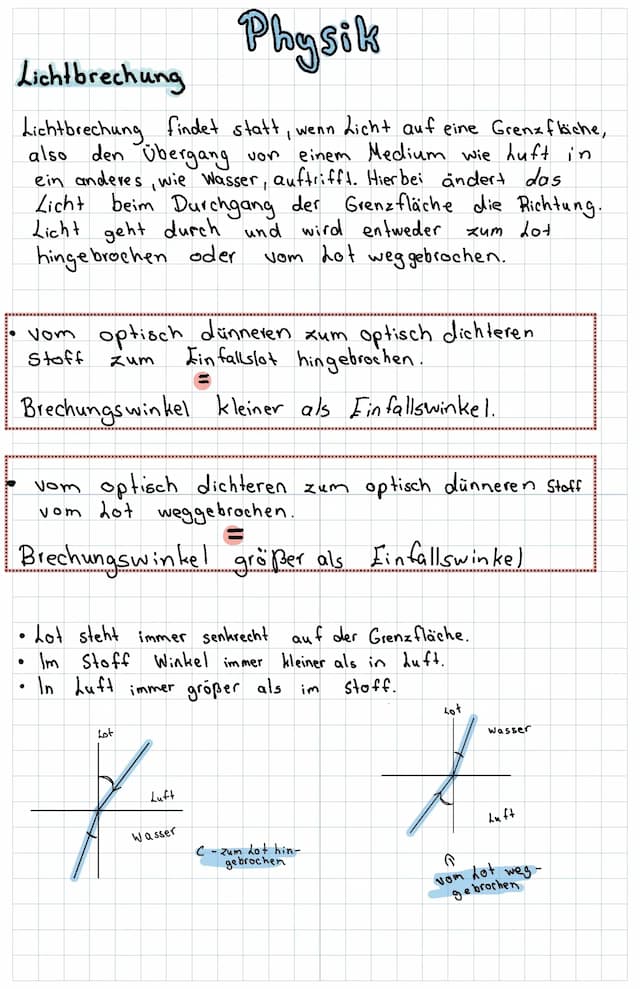 Physik
Lichtbrechung
Lichtbrechung findet statt, wenn Licht auf eine Grenzfläche,
also den Übergang von einem Medium wie Luft in
ein anderes, wie Wasser, auftrifft. Hierbei ändert das
Licht beim Durchgang der Grenzfläche die Richtung.
Licht geht durch und wird entweder zum Lot
hingebrochen oder vom Lot weggebrochen.
• vom optisch dünneren zum optisch dichteren
Stoff zum Einfallslot hingebrochen.
=
Brechungswinkel kleiner als Einfallswinkel.
• vom optisch dichteren zum optisch dünneren Stoff
vom Lot weggebrochen.
=
Brechungswinkel größer als Einfallswinkel
• Lot steht immer senkrecht auf der Grenzfläche.
• Im Stoff Winkel immer kleiner als in Luft.
• In Luft immer größer als im Stoff.
Lot
Luft
Wasser
- zum Lot hin-
gebrochen
Lot
Wasser
Luft
vom Lot weg-
gebrochen